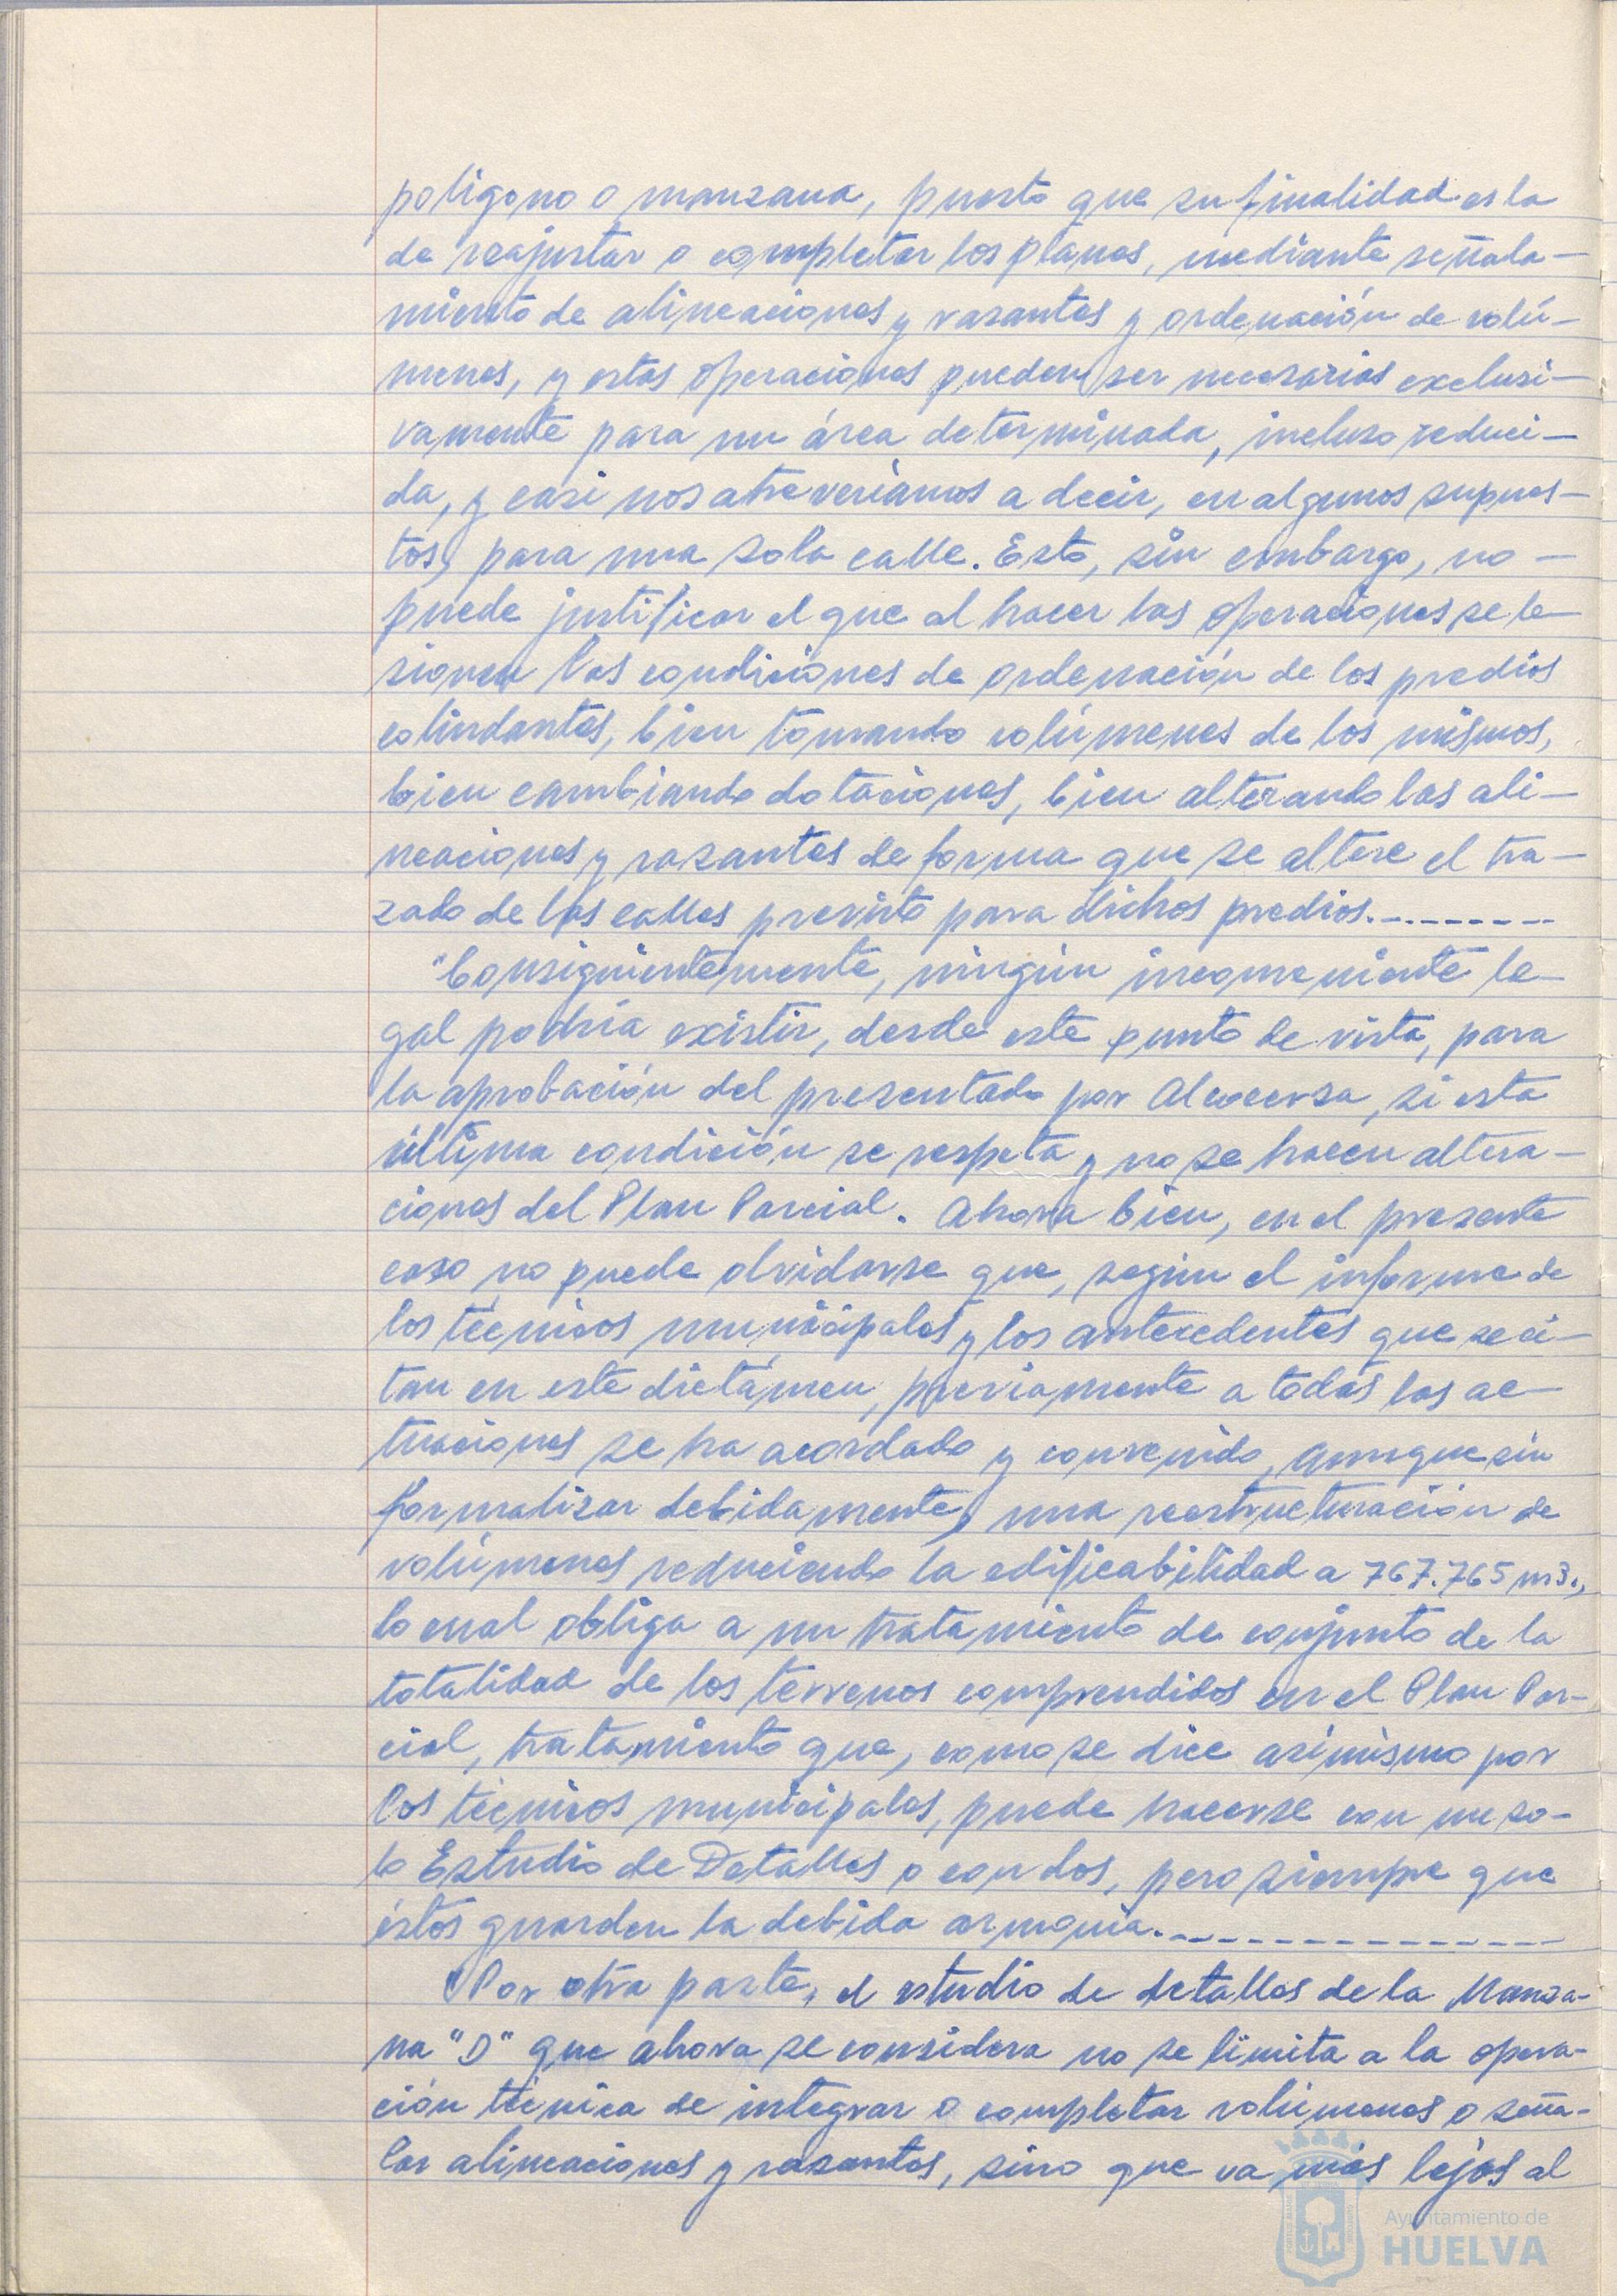 poligono o manzana, puesto que su finalidad es la
de reajustar o completar los planes, mediante señala-
miento de alineaciones y rasantes y ordenación de volú-
menes, y estas operaciones pueden ser necesarias exclusi-
vamente para un área determinada, incluso reduci-
da, y casi nos atreveríamos a decir, en algunos supues-
tos, para una sola calle. Esto, sin embargo, no -
puede justificar el que al hacer las operaciones se le-
sionen las condiciones de ordenación de los predios
colindantes, bien tomando volúmenes de los mismos,
bien cambiando dotaciones, bien alterando las ali-
neaciones y rasantes de forma que se altere el tra-
zado de las calles previsto para dichos predios.---------
"Consiguientemente, ningún inconveniente le-
gal podría existir, desde este punto de vista, para
la aprobación del presentado por Alcocersa, si esta
última condición se respeta y no se hacen altera-
ciones del Plan Parcial. Ahora bien, en el presente
caso no puede olvidarse que, según el informe de
los técnicos municipales y los antecedentes que se ci-
tan en este dictámen, previamente a todas las ac-
tuaciones se ha acordado y convenido, aunque sin
formalizar debidamente, una reestructuración de
volúmenes reduciendo la edificabilidad a 767.765 m3.,
lo cual obliga a un tratamiento de conjunto de la
totalidad de los terrenos comprendidos en el Plan Par-
cial, tratamiento que, como se dice asimismo por
los técnicos municipales, puede hacerse con un so-
lo Estudio de Detalles o con dos, pero siempre que
éstos guarden la debida armonía.---------------
"Por otra parte, el estudio de detalles de la Manza-
na "D" que ahora se considera no se limita a la opera-
ción técnica de integrar o completar volúmenes o seña-
lar alineaciones y rasantes, sino que va más lejos al
Ayuntamiento de
HUELVA